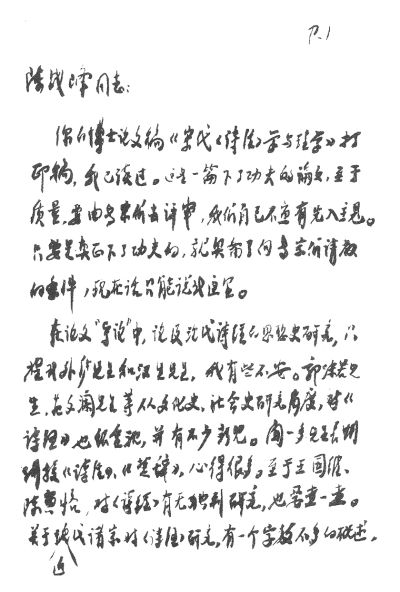 P.1
陈战峰同志：
你的博士论文稿《宋代《诗经》学与理学》打
印稿，我已读过。这是一篇下了功夫的论文，至于
质量，要由专家们去评审，我们自己不应有先入主见。
只要是真正下了功夫的，就具备了向专家们请教
的条件，现在论只能说到这里。
在论文“导论”中，谈及近代诗经的思想史研究，只
提到外庐先生和汉生先生，我有些不安。郭沫若先
生、范文澜先生等从文化史、社会史研究角度，对《
诗经》也很重视，并有不少新见。闻一多先生长期
研握《诗经》、《楚辞》，心得很多。至于王国维、
陈寅恪，对《诗经》有无独到研究，也要查一查。
关于近代诸家对《诗经》研究，有一个字数不多的概述，